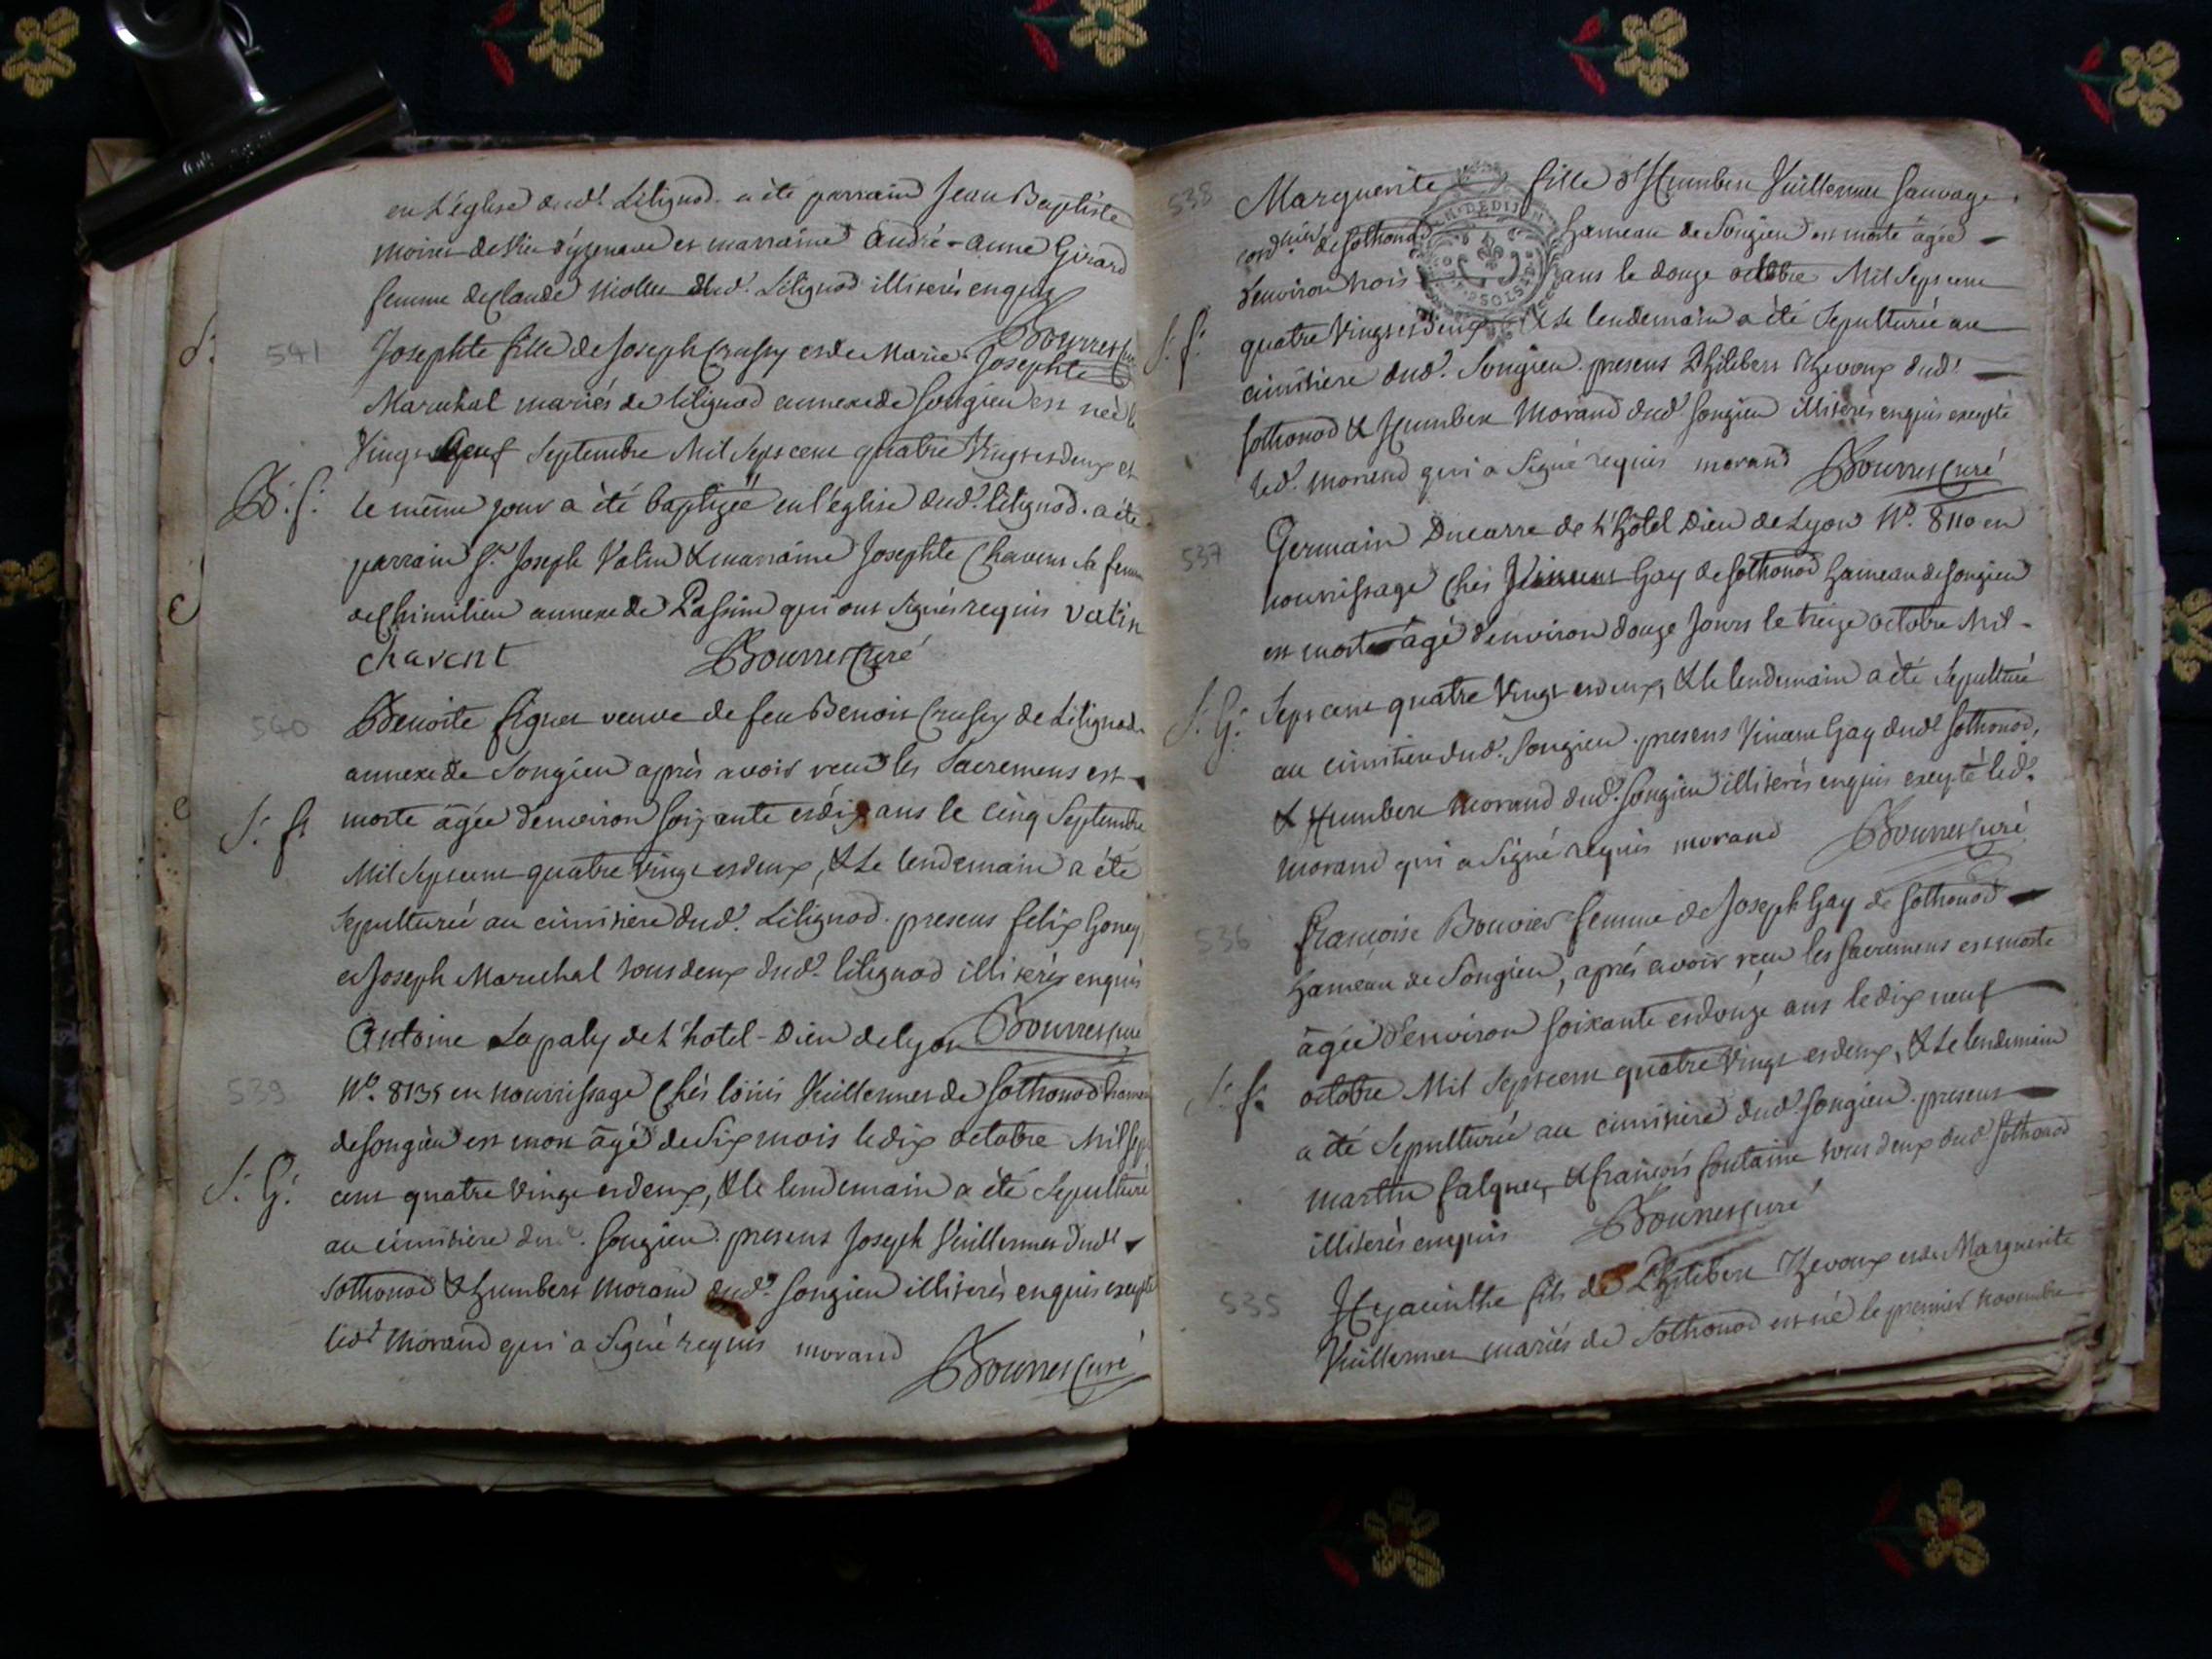 en L'église dud.t Lilignod. a été parrain Jean Baptiste
moiret de et marraine André-Anne Girard
femme de Claude dud.t Lilignod illiterés enquis
Bourret Curé
541
Josephte fille de Joseph Crussy et de Marie-Josephte
Marechal mariés de lilignod annexe de Songieu est née le
Vingt neuf Septembre Mil Sept cent quatre Vingt et deux et
B: f:
le même jour a été baptisée en l'église dud.t lilignod. a été
parrain S.r Joseph Vatin & marraine Josephte Chavent sa femme
de Chimilieu annexe de Passin qui ont signés requis Vatin
Chavent Bourret Curé
540
Benoite veuve de feu Benoit Crussy de Lilignod
annexe de Songieu après avoir reçu les Sacremens est
S: f:
morte âgée d'environ soixante et dix ans le cinq Septembre
Mil Sept cent quatre Vingt et deux, & Le lendemain a été
Sepulturée au cimitiere dud.t Lilignod. presens felix Goney
et Joseph Marechal tous deux dud.t lilignod illiterés enquis
Bourret curé
539
Antoine Lapaly de L'hotel-Dieu de lyon
N.o 8135 en nourrissage Chés loüis Vuillermet de Sothonod hameau
de Songieu est mort âgé de Six mois le dix octobre Mil Sept
S: G:
cent quatre Vingt et deux, & le lendemain a été Sepulturé
au cimitiere dud.t Songieu. presens Joseph Vuillermet dud.t
Sothonod & humbert Morand dud.t Songieu illiterés enquis excepté
led.t Morand qui a Signé requis morand
Bourret Curé
538
Marguerite fille d'Humbert Vuillermet Sauvage
cord.nier de Sothonod hameau de Songieu est morte âgée
d'environ trois ans le douze octobre Mil Sept cent
S: f:
quatre Vingt et deux & Le lendemain a été Sepulturée au
cimitiere dud.t Songieu. presens Philibert Thevoux dud.t
Sothonod & Humbert Morand dud.t Songieu illiterés enquis excepté
led.t Morand qui a Signé requis morand Bourret Curé
537
Germain Ducarre de L'hôtel Dieu de Lyon N.o 8110 en
nourrissage Chés Vincent Gay de Sothonod hameau de Songieu
est mort âgé d'environ douze Jours le treize octobre Mil
S: G:
Sept cent quatre Vingt et deux, & le lendemain a été Sepulturé
au cimitiere dud.t Songieu. presens Vincent Gay dud.t Sothonod,
& Humbert Morand dud.t Songieu illiterés enquis excepté led.t
Morand qui a Signé requis morand Bourret Curé
536
Françoise Bouvier femme de Joseph Gay de Sothonod
hameau de Songieu, après avoir reçu les Sacremens est morte
âgée d'environ Soixante et douze ans le dix neuf
S: f:
octobre Mil Sept cent quatre Vingt et deux, & Le lendemain
a été Sepulturée au cimitiere dud.t Songieu. presens
Martin falquet, & françois fontaine tous deux dud.t Sothonod
illiterés enquis Bourret Curé
535
Hyacinthe fils de Philibert Thevoux et de Marguerite
Vuillermet mariés de Sothonod est né le premier novembre